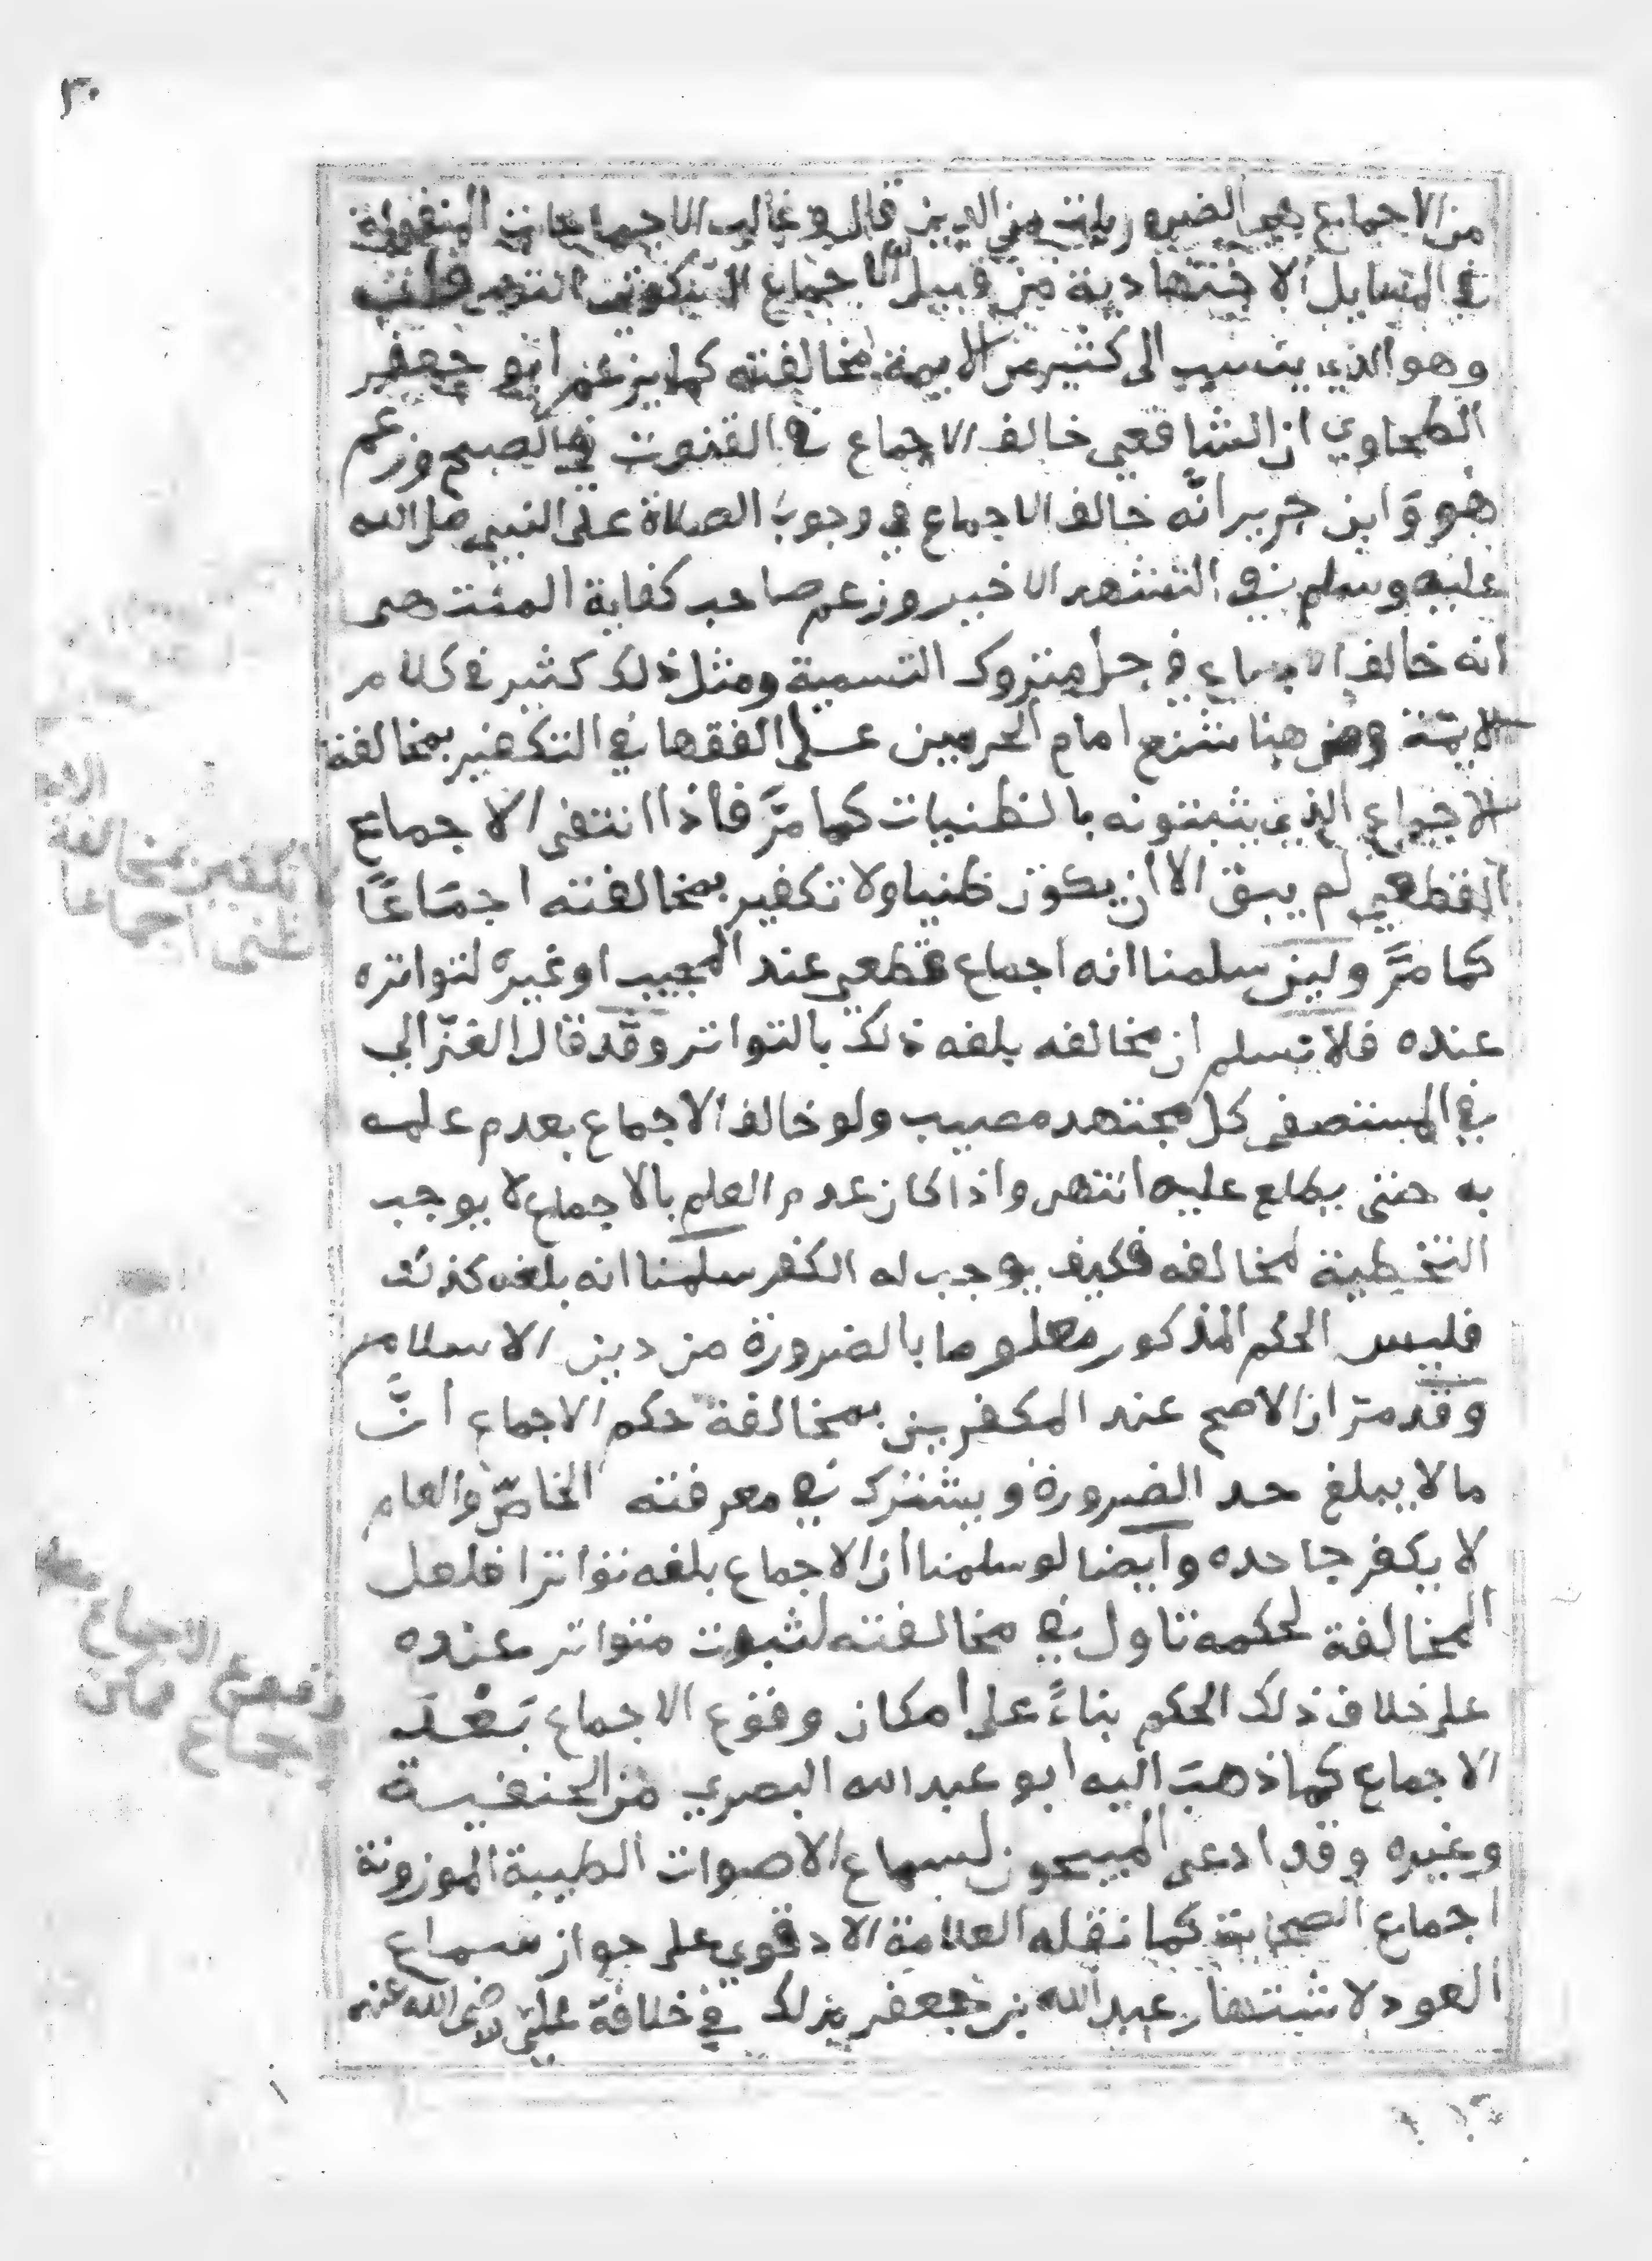 ٣٠
من الاجماع هي الضروريات من الدين قال وغالب الاجماعات المنقولة
في المسايل الاجتهادية من قبيل الاجماع السكوتي انتهى قلت
وهو الذي ينسب الى كثير من الايمة مخالفته كما يزعم ابو جعفر
الطحاوي ان الشافعي خالف الاجماع في القنوت في الصبح وزعم
هو وَابن جرير انَّه خالف الاجماع في وجوب الصلاة على النبي صلى الله
عليه وسلم في التشهد الاخير وزعم صاحب كفاية المنتهى
انه خالف الاجماع في حل متروك التسمية ومثل ذلك كثير في كلام
الايمة ومن هنا شنع امام الحرمين على الفقها في التكفير بمخالفة
الاجماع الذي يثبتونه بالظنيات كما مَرَّ فاذا انتفى الاجماع
القطعي لم يبق الا ان يكون ظنيا ولا تكفير بمخالفته اجمَاعًا
كما مَرَّ ولين سلمنا انه اجماع قطعي عند المجيب او غيره لتواتره
عنده فلا نسلم ان مخالفه بلغه ذلك بالتواتر وقد قال الغزّالي
في المستصفى كل مجتهد مصيب ولو خالف الاجماع بعدم علمه
به حتى يطلع عليه انتهى واذا كان عدم العلم بالاجماع لا يوجب
التخطية لمخالفه فكيف يوجب له الكفر سلمنا انه بلغه كذلك
فليس الحكم المذكور معلوما بالضرورة من دين الاسلام
وقد مرّ ان الاصح عند المكفرين بمخالفة حكم الاجماع انَّ
ما لا يبلغ حد الضرورة ويشترك في معرفته الخاصّ والعام
لا يكفر جاحده وايضا لو سلمنا ان الاجماع بلغه تواترا فلعل
المخالفة لحكمه تاول في مخالفته لثبوت متواتر عنده
على خلاف ذلك الحكم بناءً على امكان وقوع الاجماع بَعْدَ
الاجماع كما ذهبَ اليه ابو عبد الله البصري من الحنفية
وغيره وقد ادعى المبيحون لسماع الاصوات الطيبة الموزونة
اجماع الصحابة كما نقله العلامة الادفوي على جواز سماع
العود لاشتهار عبد الله بن جعفر بذلك في خلافة علي رضى الله عنه